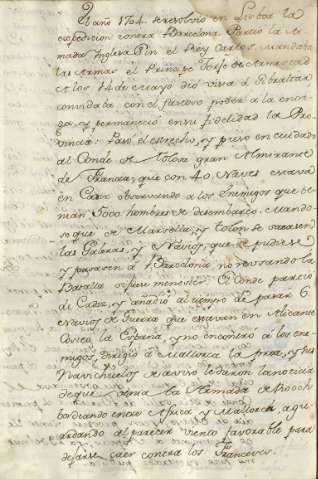 El año 1704. se resolvio en Lisboa la
expedicion contra Barcelona. Partio la Ar
mada Inglesa con el Rey Carlos. Mandaba
las Armas el Principe Jorge de Armestad
A los 14 de mayo dió vista á Gibraltar
convidaba con el perdon poder a la enor
da, y permaneció en su fidelidad la Pro
vincia. Pasó el estrecho, y puso en cuidado
al Conde de Tolosa gran Almirante
de Francia, que con 40. Naves estava
en Cadiz observando a los Enemigos que te
nian 5000 hombres de desembarco. Mando
se que de Marsella, y Tolon se sacasen
las Galeras, y Navios, que se pudiese
y pasasen á Barcelona, no reusando la
Batalla si fuese menester. El Conde partió
de Cadiz, y añadió al tiempo de pasar 6
navios de Guerra que estaven en Alicante
Costea la España, y no encontró a los ene
migos, dirigió á Mallorca la proa, y tres
Navichuelos de aviso le dieron la noticia
de que venia la Armada de Rooch
bordeando entre Africa, y Mallorca, agu
ardando al parecer viento favorable para
dejarse caer contra los Franceses.